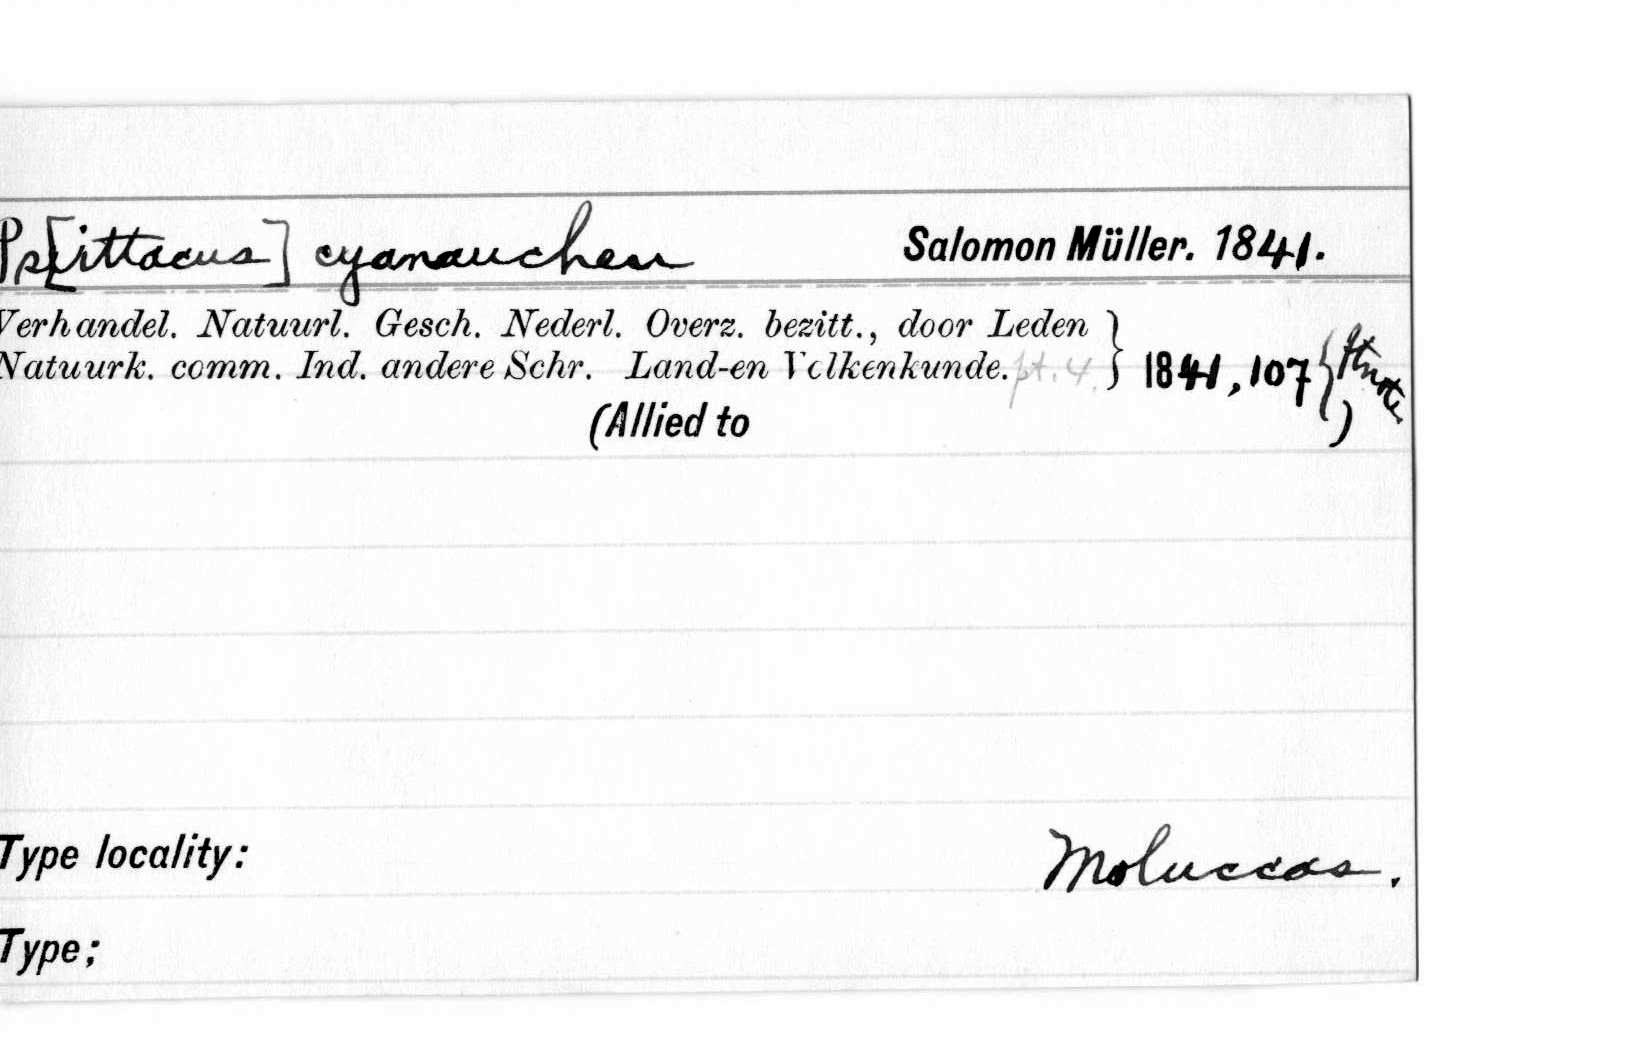 Ps[ittacus] cyanauchen Salomon Müller. 1841.
Verhandel. Natuurl. Gesch. Nederl. Overz. bezitt., door Leden }
Natuurk. comm. Ind. andere Schr. Land-en Volkenkunde. pt. 4. } 1841, 107 { ftnote
(Allied to )
Type locality: Moluccas.
Type;